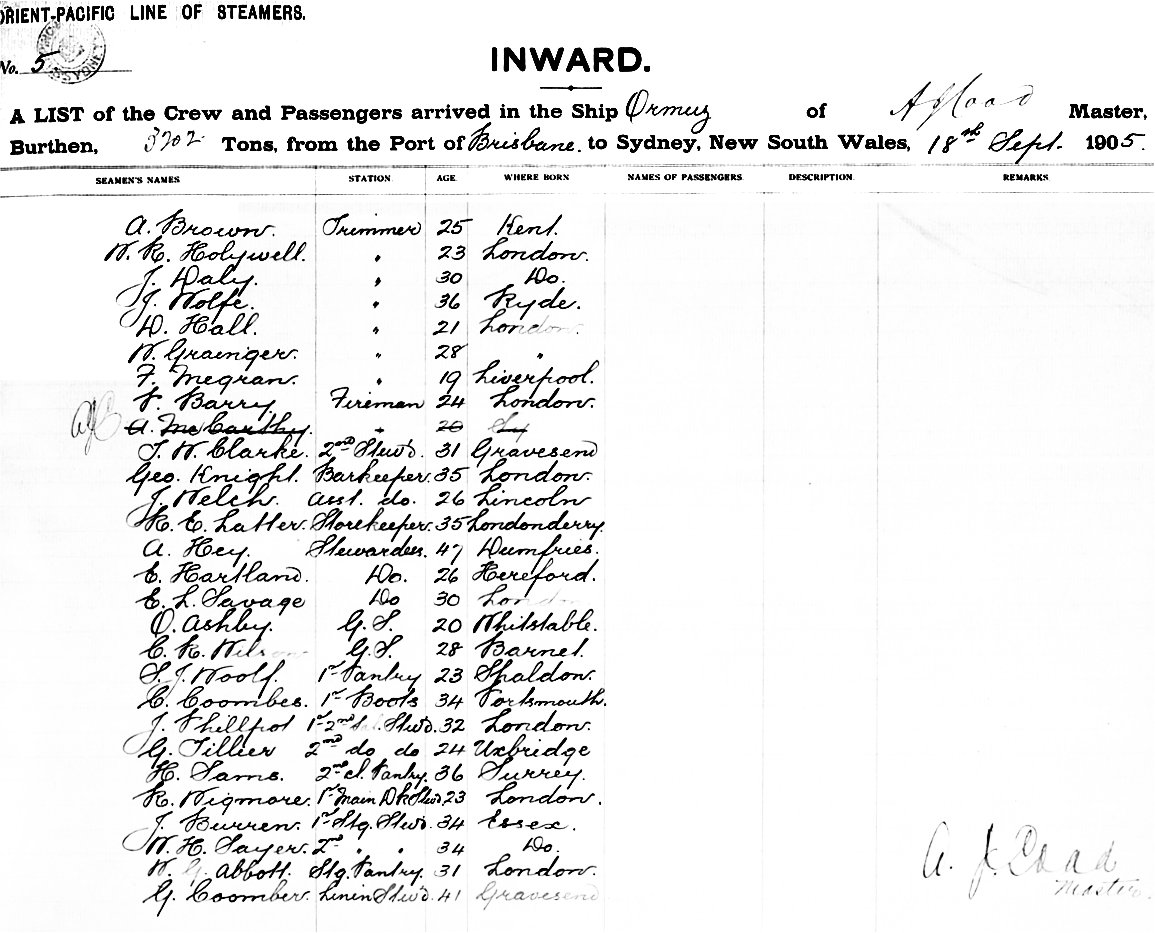 ORIENT-PACIFIC LINE OF STEAMERS.
No. 5
INWARD.
A LIST of the Crew and Passengers arrived in the Ship Ormuz of A J Coad Master,
Burthen, 3202 Tons, from the Port of Brisbane. to Sydney, New South Wales, 18th Sept. 1905.
SEAMEN'S NAMES STATION. AGE. WHERE BORN NAMES OF PASSENGERS. DESCRIPTION. REMARKS
A. Brown. Trimmer 25 Kent.
W. R. Holywell. " 23 London.
J. Daly. " 30 Do.
J. Wolfe. " 36 Ryde.
D. Hall. " 21 London.
W. Grainger. " 28 "
F. Megran. " 19 Liverpool.
P. Barry. Fireman 24 London.
AJC A. McCarthy. " 20
J. W. Clarke. 2nd Stew'd. 31 Gravesend
Geo. Knight. Barkeeper. 35 London.
J. Welch. Asst. do. 26 Lincoln
R. E. Latter. Storekeeper. 35 Londonderry.
A. Hey. Stewardess. 47 Dumfries.
E. Hartland. Do. 26 Hereford.
E. L. Savage Do 30 London
O. Ashby. G. S. 20 Whitstable.
C. R. Wilson G.S. 28 Barnet.
S. J. Woolf. 1st Pantry 23 Shaldon.
C. Coombes. 1st Boots 34 Portsmouth.
J. Phillpot 1st 2nd Stew'd. 32 London.
G. Tillier 2nd do do 24 Uxbridge
H. Sams. 2nd cl. Pantry. 36 Surrey.
R. Wigmore. 1st Main Dk Stew'd 23 London.
J. Burren. 1st Stg. Stew'd. 34 Essex.
W. H. Sayer. 2nd " " 34 Do.
W. G. Abbott. Stg. Pantry. 31 London.
G. Coomber. Linen Stew'd. 41 Gravesend
A. J. Coad
Master.